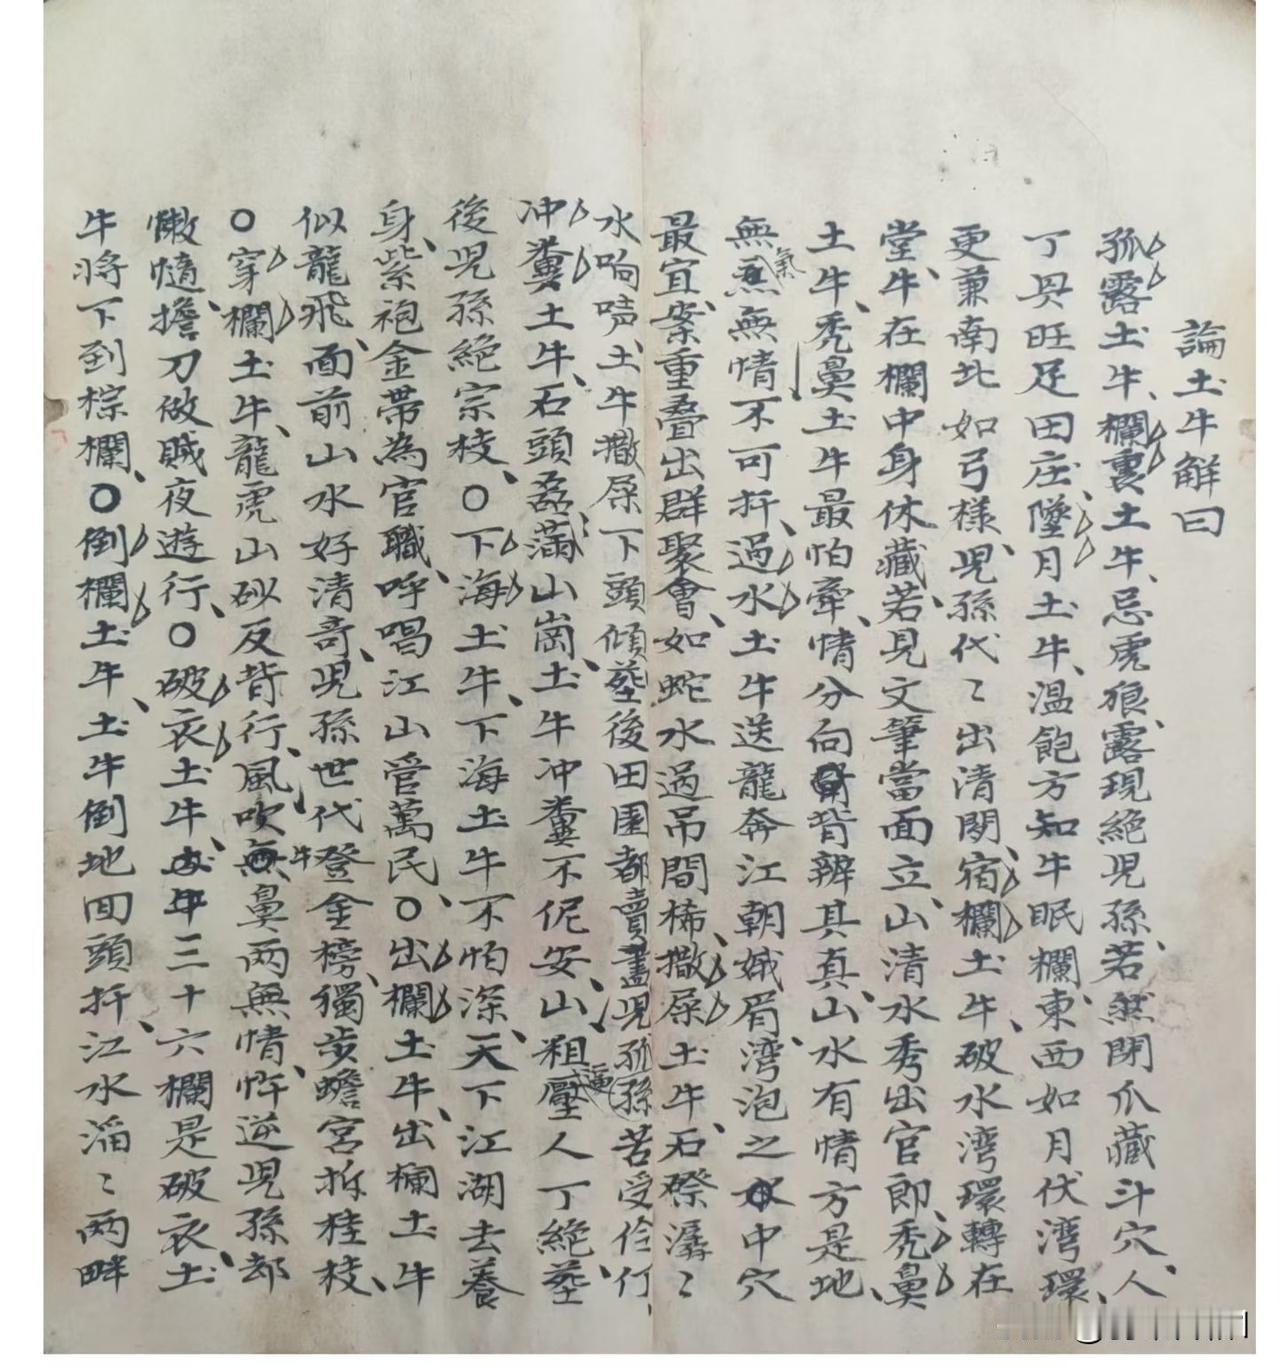 論土牛解曰
孤露土牛、欄裏土牛、忌虎狼、露現絕児孫、若然閉爪藏斗穴、人
丁興旺足田庄、墜月土牛、溫飽方知牛眠欄、東西如月伏湾環、
更兼南北如弓樣、児孫代〻出清閑、宿欄土牛、破水湾環轉在
堂、牛在欄中身休藏、若見文筆當面立、山清水秀出官郎、禿鼻
土牛、禿鼻土牛最怕牽、情分向背辨其真、山水有情方是地、
無氣無情不可扦、過水土牛送龍奔江朝娥眉、湾泡之水中穴
最宜、案重疊出群聚會、如蛇水過吊間梯、撒屎土牛、石磜潺〻
水响唠、土牛撒屎下頭傾、塟後田園都賣盡、児孤孫苦受伶仃、
冲糞土牛、石頭磊滿山崗、土牛冲糞不伲安、山粗逼壓人丁絕、塟
後児孫絕宗枝、〇下海土牛、下海土牛不怕深、天下江湖去養
身、紫袍金帶為官職、呼喝江山管萬民、〇出欄土牛、出欄土牛
似龍飛、面前山水好清奇、児孫世代登金榜、獨步蟾宮拆桂枝、
〇穿欄土牛、龍虎山砂反背行、風吹牛鼻兩無情、忤逆児孫都
懒惰、擔刀做賊夜遊行、〇破衣土牛、三十六欄是破衣、土
牛將下到棕欄、〇倒欄土牛、土牛倒地回頭扦、江水滔〻两畔